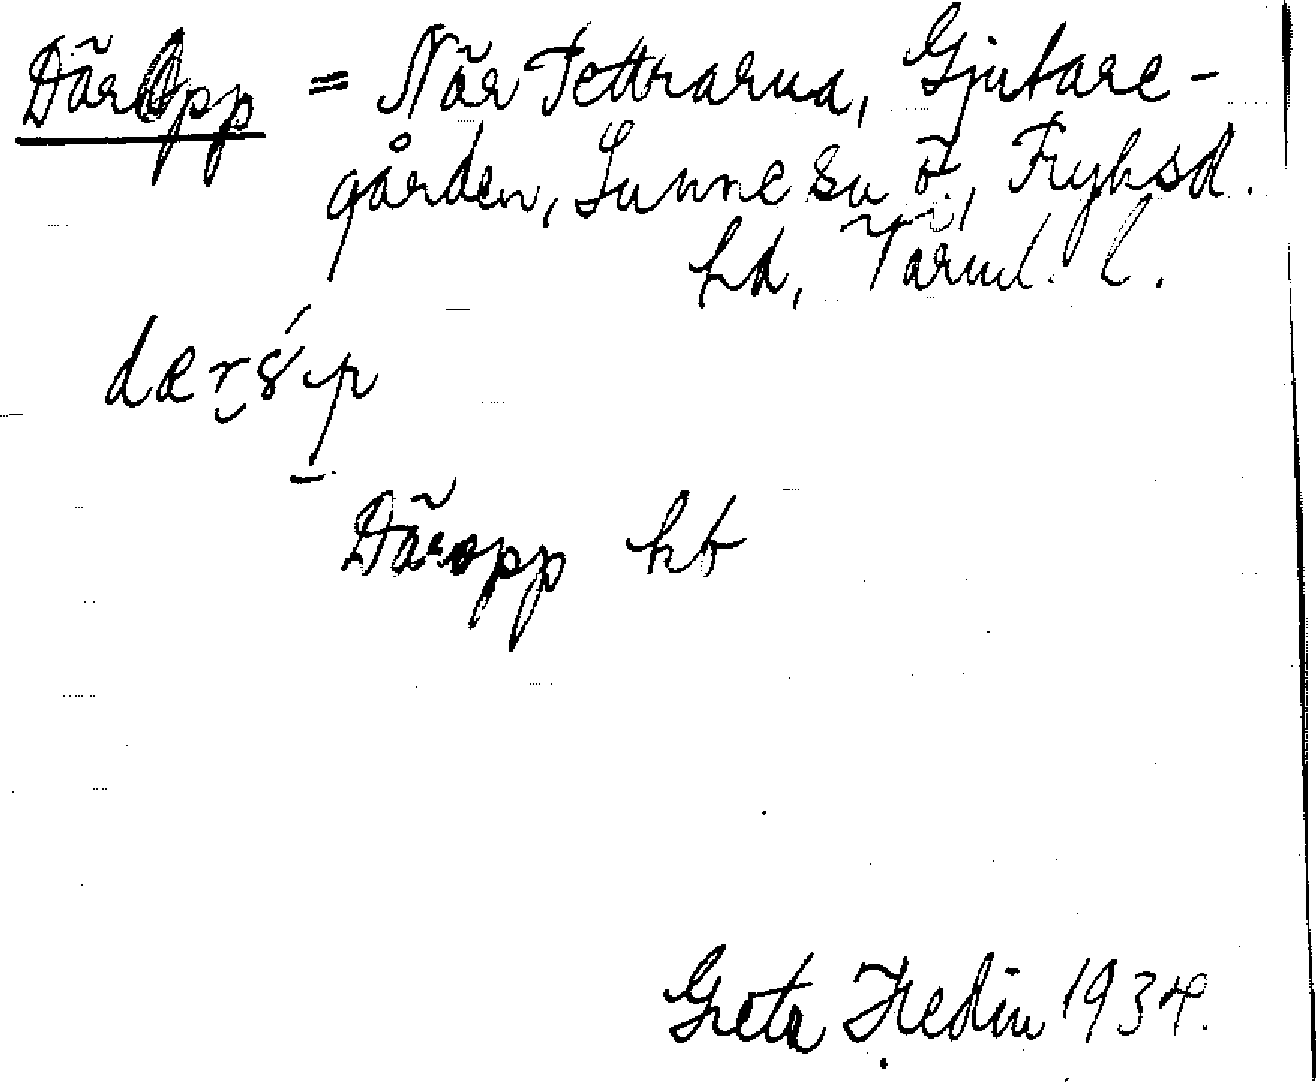 Däropp = När Tettrarna, Gjutare-
gården, Sunne sn Ö, Fryksd.
hd, Värml. l.
dær
Däropp hb
Greta Hedin 1934.